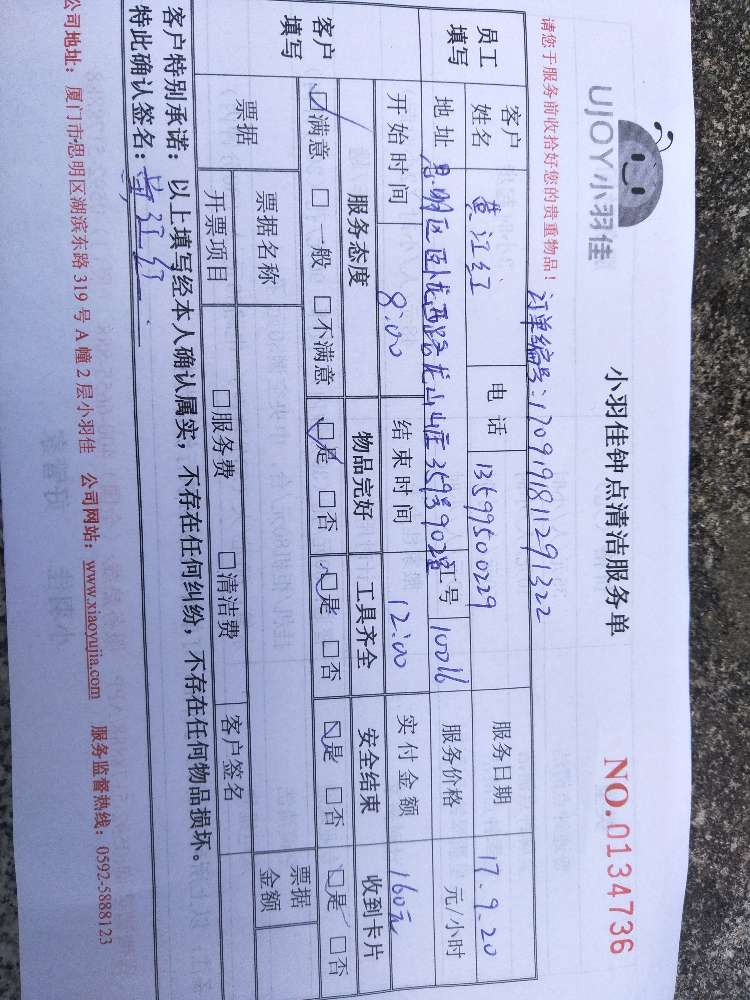 UJOY小羽佳
小羽佳钟点清洁服务单
NO.0134736
请您于服务前收拾好您的贵重物品！
订单编号：1709191811291322
员工填写
客户姓名 黄江红 电话 13599500229 服务日期 17.9.20
地址 思明区卧龙西路龙山山庄 工号 10016 服务价格 元/小时
开始时间 8:00 结束时间 12:00 实付金额 160元
客户填写
服务态度 物品完好 工具齐全 安全结束 收到卡片
☑满意 □一般 □不满意 ☑是 □否 ☑是 □否 ☑是 □否 ☑是 □否
票据 票据名称 票据金额
开票项目 □服务费 □清洁费 客户签名
客户特别承诺：以上填写经本人确认属实，不存在任何纠纷，不存在任何物品损坏。
特此确认签名：黄江红
公司地址：厦门市思明区湖滨东路319号A幢2层小羽佳 公司网站：www.xiaoyujia.com 服务监督热线：0592-5888123